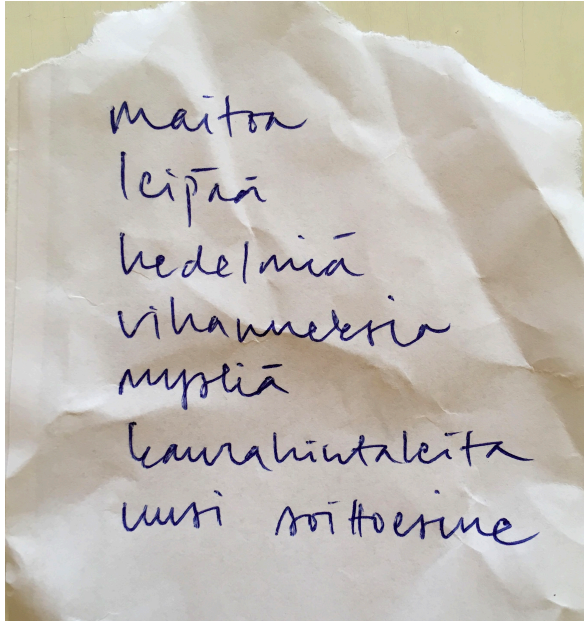 maitoa
leipää
hedelmiä
vihanneksia
mysliä
kaurahiutaleita
uusi soittoesine